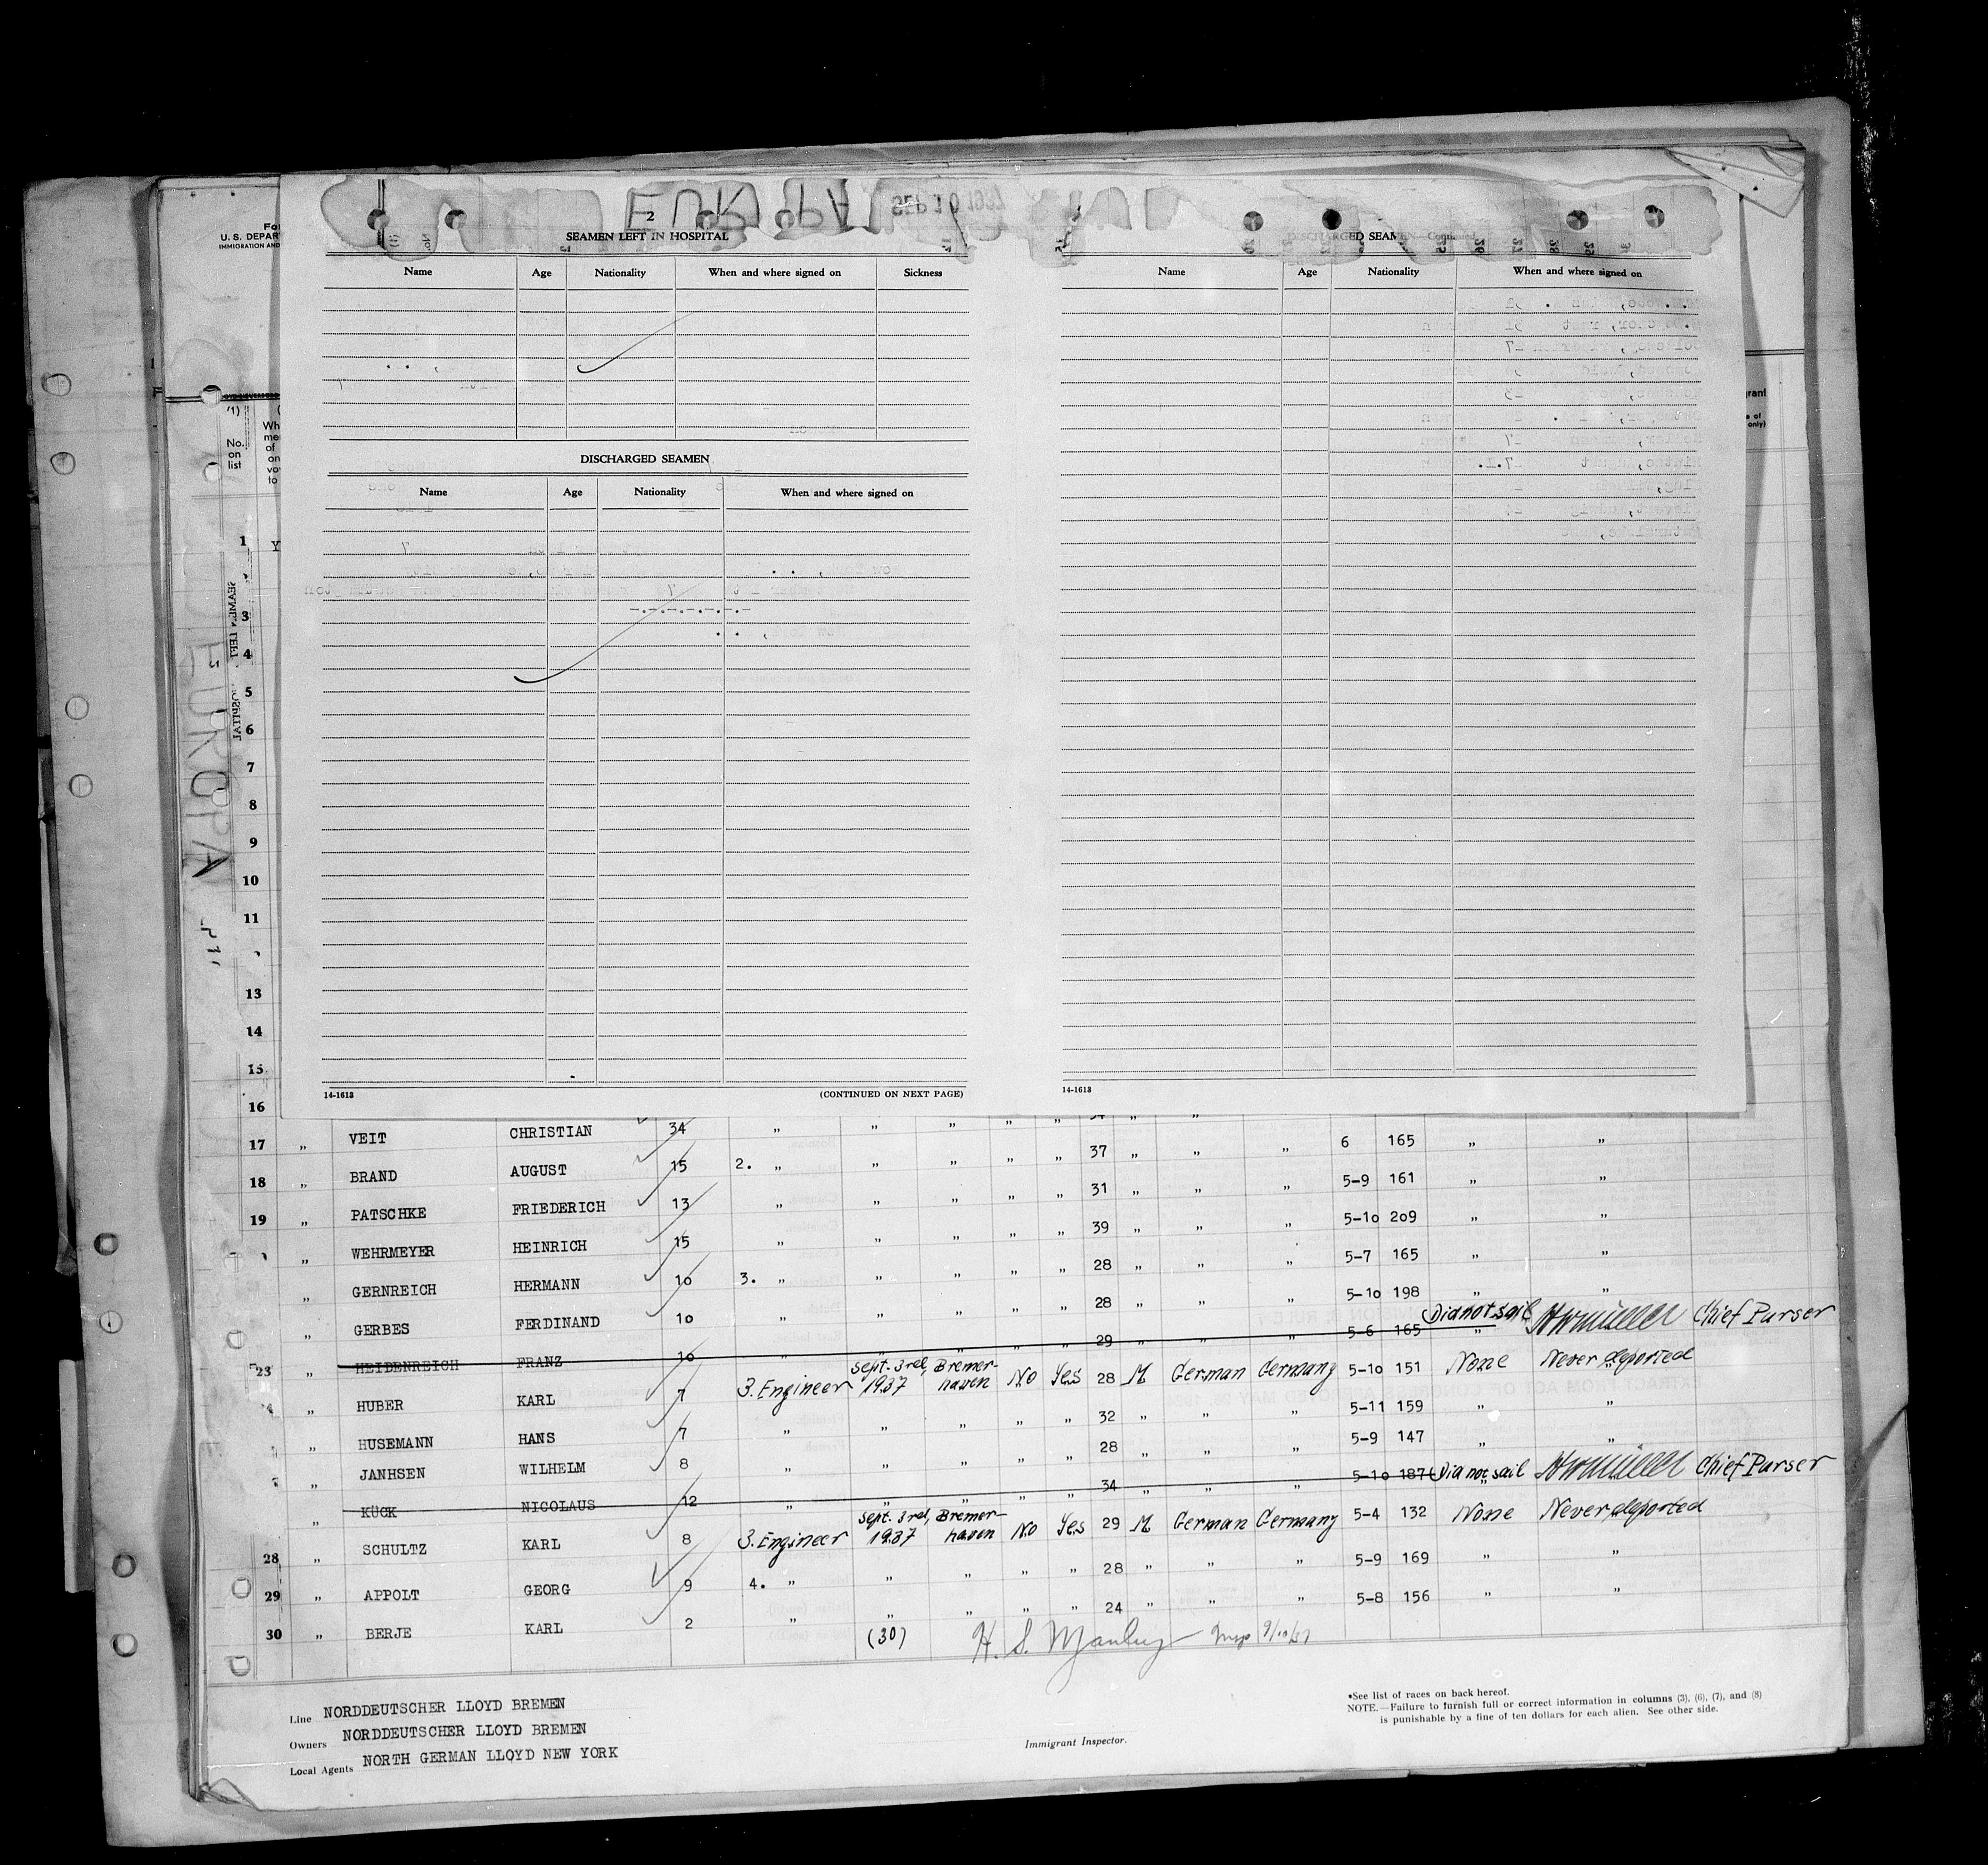 EUROPA SEP 10 1937
2
SEAMEN LEFT IN HOSPITAL
Name Age Nationality When and where signed on Sickness
DISCHARGED SEAMEN
Name Age Nationality When and where signed on
14-1613 (CONTINUED ON NEXT PAGE)
DISCHARGED SEAMEN—Continued
Name Age Nationality When and where signed on
14-1613
U. S. DEPAR
IMMIGRATION AND
(1)
No. on list
EUROPA
1 Y
3
4
5
6
7
8
9
10
11
13
14
15
16
17 „ VEIT CHRISTIAN 34 „ „ „ „ „ 37 „ „ „ 6 165 „ „
18 „ BRAND AUGUST 15 2. „ „ „ „ „ 31 „ „ „ 5-9 161 „ „
19 „ PATSCHKE FRIEDERICH 13 „ „ „ „ „ 39 „ „ „ 5-10 209 „ „
„ WEHRMEYER HEINRICH 15 „ „ „ „ „ 28 „ „ „ 5-7 165 „ „
„ GERNREICH HERMANN 10 3. „ „ „ „ „ 28 „ „ „ 5-10 198 „ „
„ GERBES FERDINAND 10 „ „ „ „ „ 29 „ „ „ 5-6 165 „ Did not sail Chief Purser
23 „ HEIDENREICH FRANZ 10 „
„ HUBER KARL 7 3. Engineer Sept. 3rd, 1937 Bremerhaven No Yes 28 M German Germany 5-10 151 None Never deported
„ HUSEMANN HANS 7 „ „ „ „ „ 32 „ „ „ 5-11 159 „ „
„ JANHSEN WILHELM 8 „ „ „ „ „ 28 „ „ „ 5-9 147 „ „
„ KÜCK NICOLAUS 12 „ „ „ „ „ 34 „ „ „ 5-10 187 Did not sail Chief Purser
28 „ SCHULTZ KARL 8 3. Engineer Sept. 3rd, 1937 Bremerhaven No Yes 29 M German Germany 5-4 132 None Never deported
29 „ APPOLT GEORG 9 4. „ „ „ „ „ 28 „ „ „ 5-9 169 „ „
30 „ BERJE KARL 2 „ „ „ „ „ 24 „ „ „ 5-8 156 „ „
(30) H. S. Manley Insp 9/10/37
Line NORDDEUTSCHER LLOYD BREMEN
Owners NORDDEUTSCHER LLOYD BREMEN
Local Agents NORTH GERMAN LLOYD NEW YORK
Immigrant Inspector.
*See list of races on back hereof.
NOTE.—Failure to furnish full or correct information in columns (3), (6), (7), and (8)
is punishable by a fine of ten dollars for each alien. See other side.